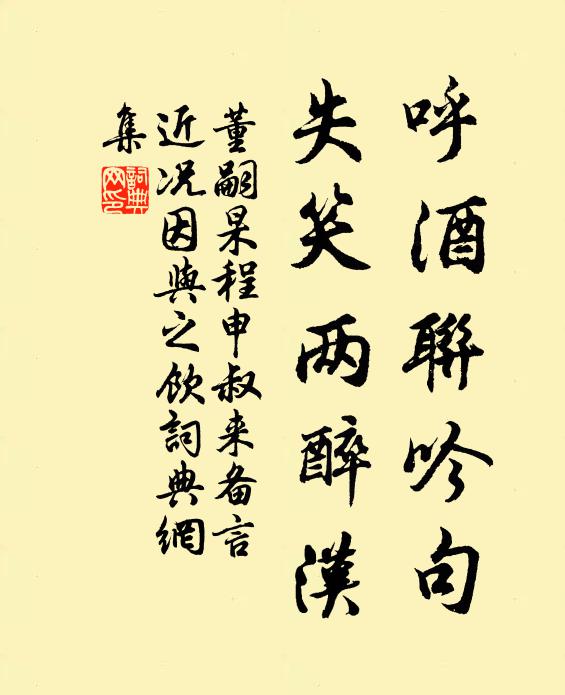 呼酒聯吟句
失笑兩醉漢
董嗣杲程申叔来备言
近况因與之飲詞典網
集
詞典網印